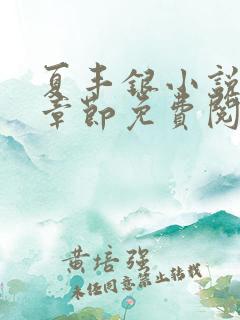 夏丰银小说
章节免费阅
黄培强
未经同意禁止转载